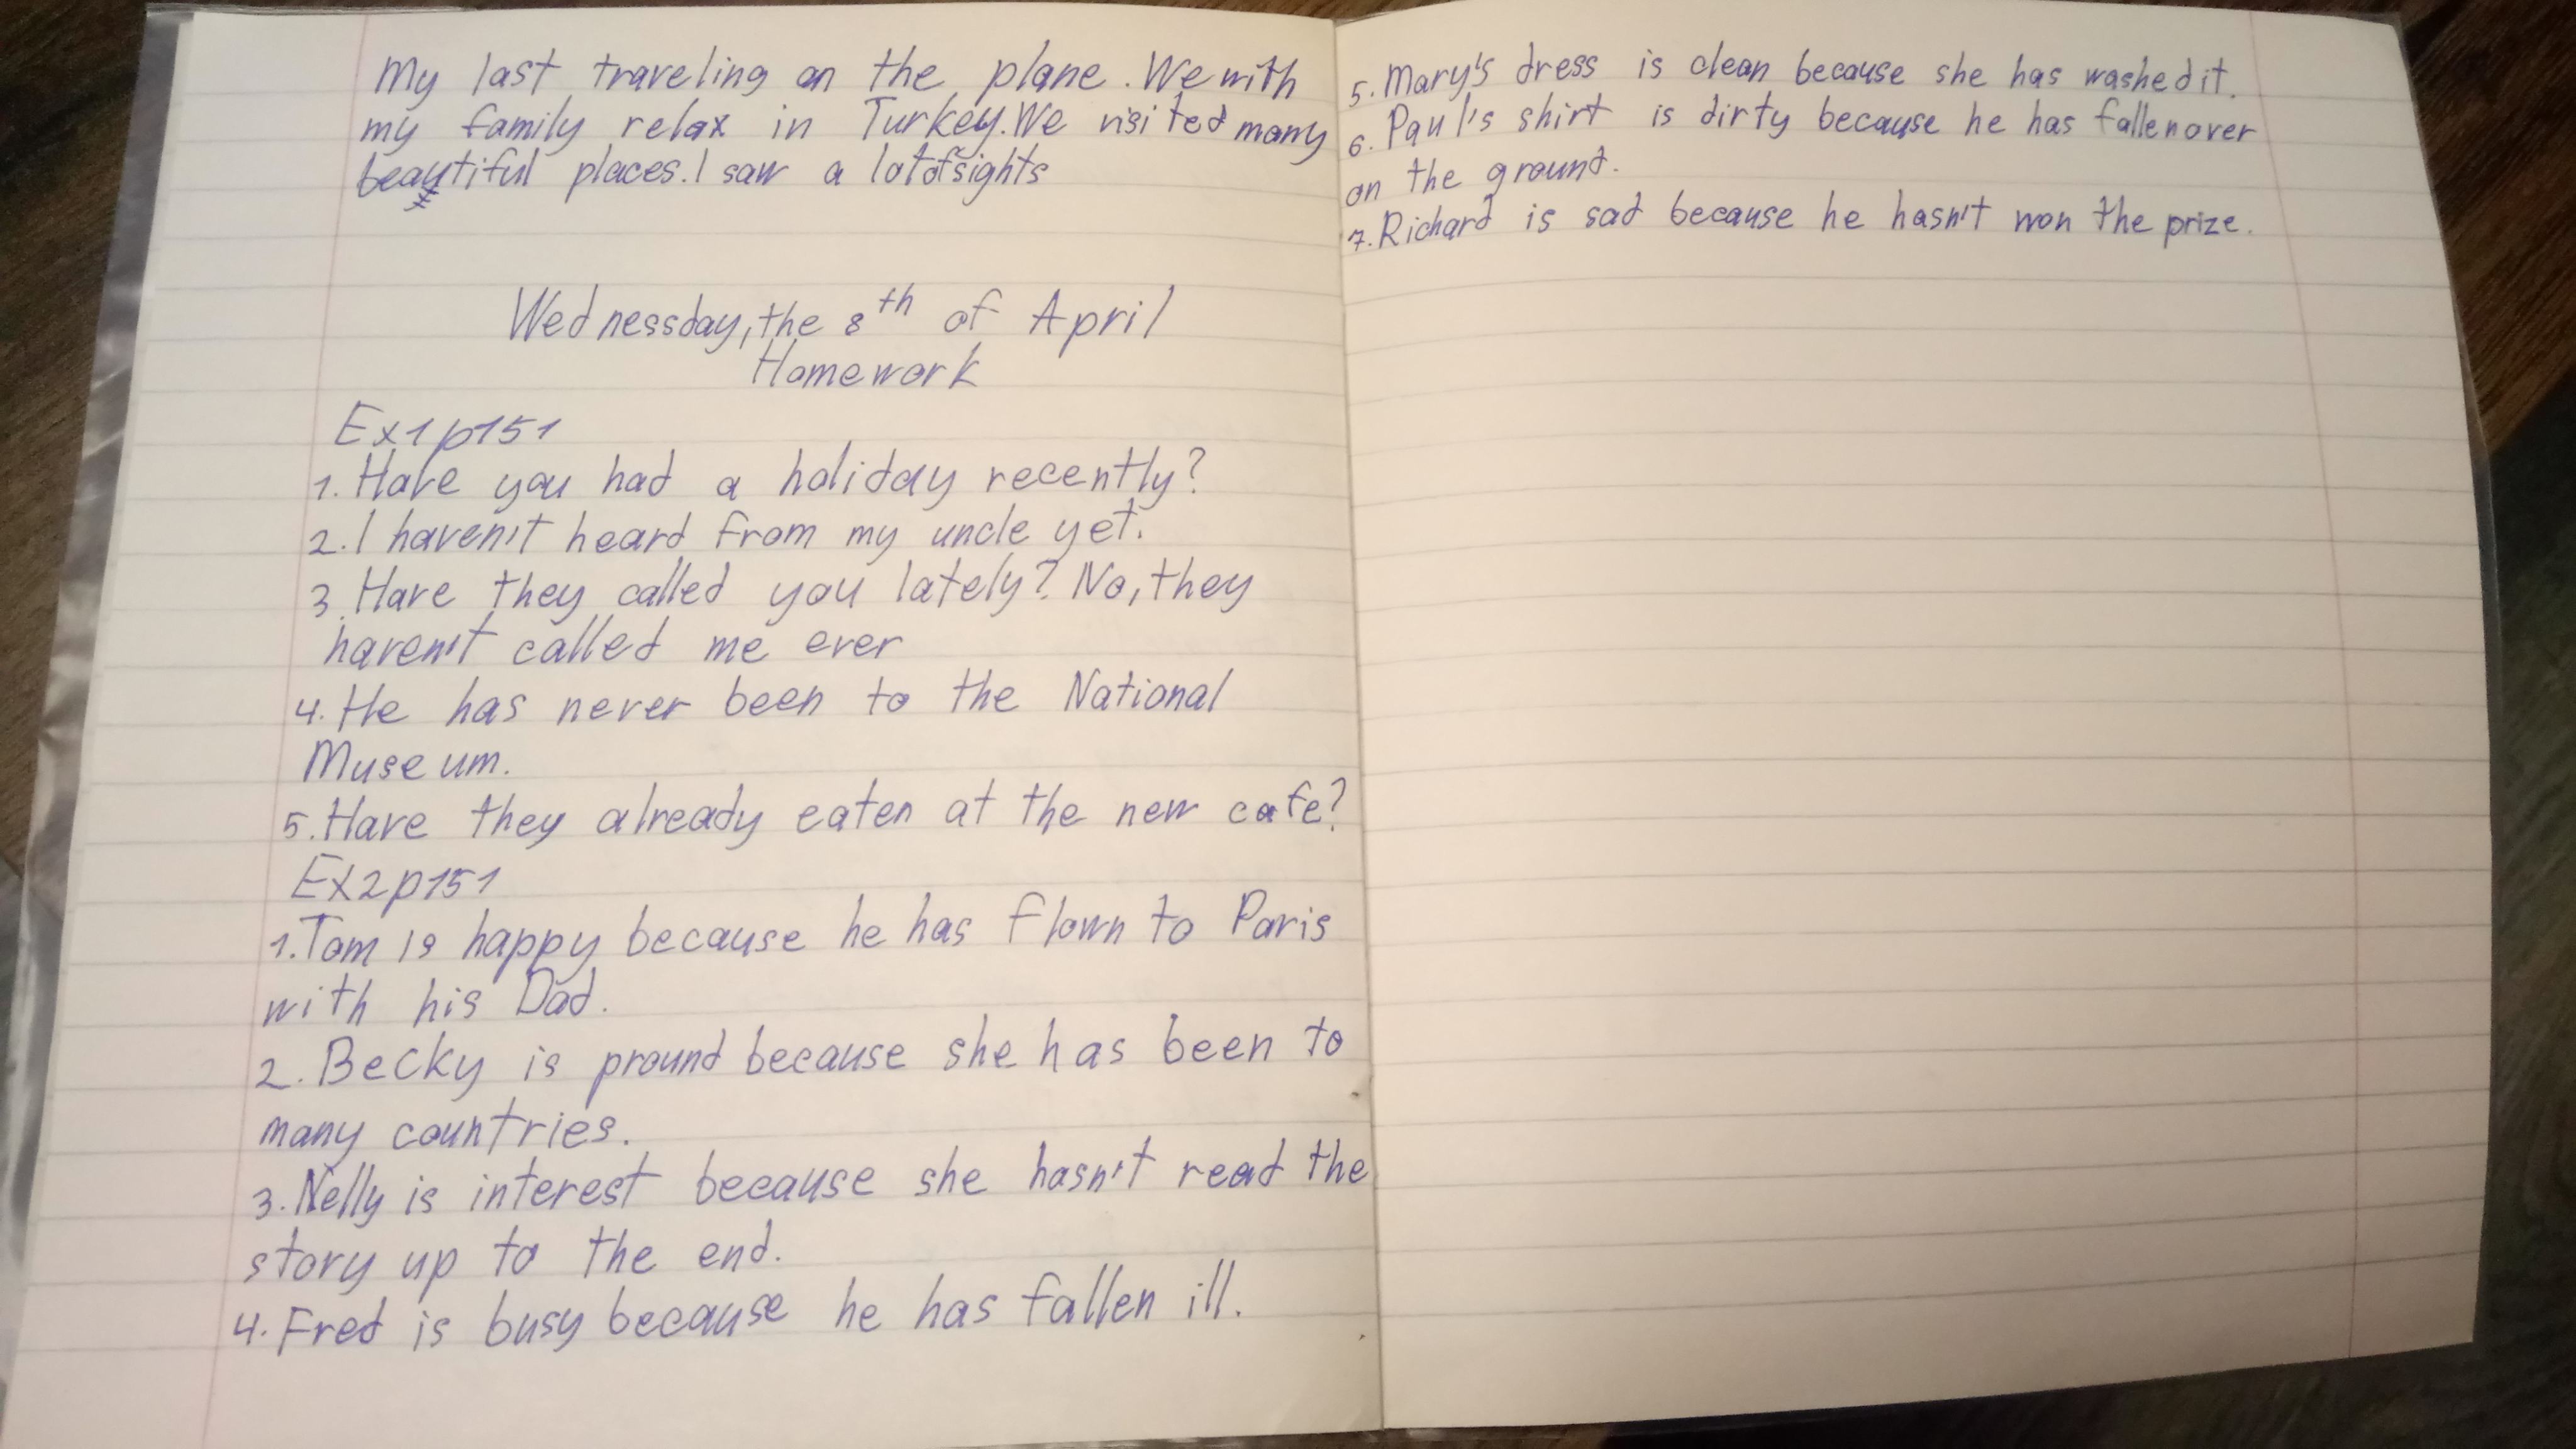 My last traveling on the plane. We with
my family relax in Turkey. We visited many
beautiful places. I saw a lot of sights
Wednessday, the 8th of April
Homework
Ex1 p151
1. Have you had a holiday recently?
2. I haven't heard from my uncle yet.
3. Have they called you lately? No, they
haven't called me ever
4. He has never been to the National
Museum.
5. Have they already eaten at the new cafe?
Ex2 p151
1. Tom is happy because he has flown to Paris
with his Dad.
2. Becky is pround because she has been to
many countries.
3. Nelly is interest because she hasn't read the
story up to the end.
4. Fred is busy because he has fallen ill.
5. Mary's dress is clean because she has washed it.
6. Paul's shirt is dirty because he has fallen over
on the ground.
7. Richard is sad because he hasn't won the prize.